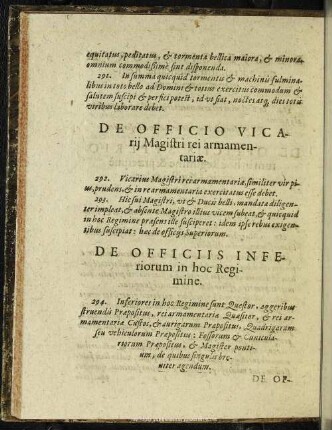 equitatus, peditatus, & tormenta bellica maiora, & minora,
omnium commodissimè sint disponenda.
291. In summa quicquid tormentis & machinis fulmina-
libus in toto bello ad Domini & totius exercitus commodum &
salutem suscipi & perfici potest, id vt fiat, noctes atq; dies totis
viribus laborare debet.
DE OFFICIO VICA-
rij Magistri rei armamen-
tariæ.
292. Vicarius Magistri rei armamentariæ, similiter vir pi-
us, prudens, & in re armamentaria exercitatus esse debet.
293. Hic sui Magistri, vt & Ducis belli, mandata diligen-
ter impleat, & absente Magistro illius vicem subeat, & quicquid
in hoc Regimine præsens ille susciperet: idem ipse rebus exigen-
tibus suscipiat: hæc de officijs Superiorum.
DE OFFICIIS INFE-
riorum in hoc Regi-
mine.
294. Inferiores in hoc Regimine sunt Quæstor, aggeribus
struendis Præpositus, rei armamentaria Quæsitor, & rei ar-
mamentaria Custos, & aurigarum Præpositus, Quadrigarum
seu vehiculorum Præpositus: Fossorum & Cunicula-
riorum Præpositus, & Magister ponti-
um, de quibus singulis bre-
uiter agendum.
DE OF-